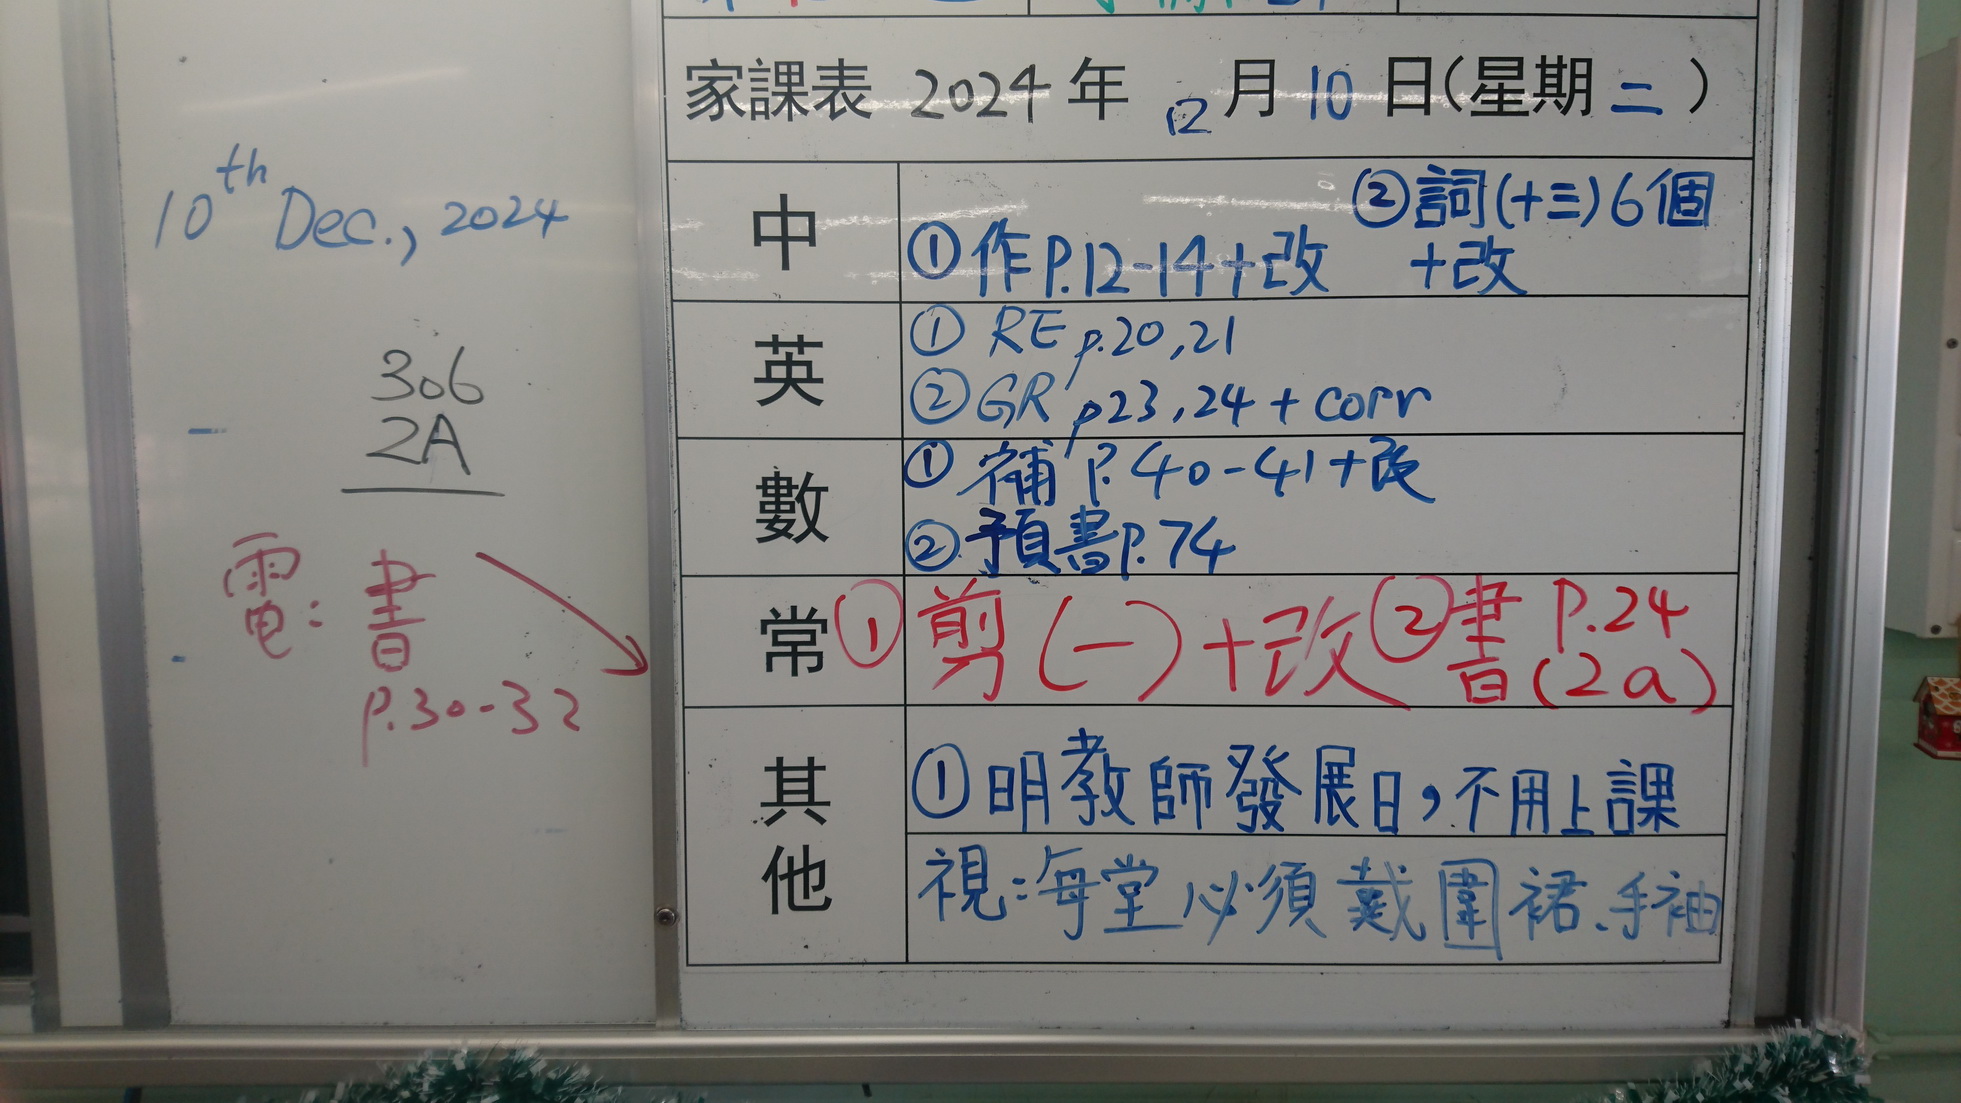 10th Dec., 2024
306
2A
電: 書
p.30-32
家課表 2024 年 12 月 10 日(星期 二 )
中
②詞(十三)6個
①作P.12-14+改 +改
英
① RE p.20,21
② GR p23,24 + corr
數
① 補 P.40-41+改
② 預書P.74
常
① 剪(一)+改 ②書 P.24
(2a)
其他
①明教師發展日,不用上課
視:每堂必須戴圍裙、手袖